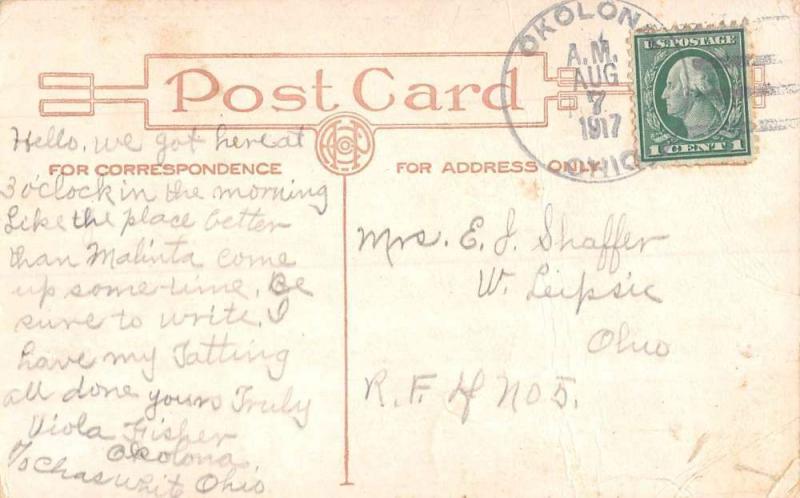 Post Card
OKOLONA
A.M.
AUG
7
1917
OHIO
U.S. POSTAGE
1 CENT 1
FOR CORRESPONDENCE
FOR ADDRESS ONLY
Hello, we got here at
3 o'clock in the morning
Like the place better
than Malinta come
up some-time. Be
sure to write. I
have my Tatting
all done yours Truly
Viola Fisher
Okolona
c/o Chas Ohio
Mrs. E. J. Shaffer
W. Leipsic
Ohio
R. F. D No 5.